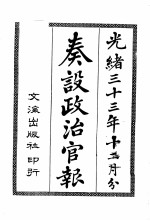 光緒三十三年十月分
奏設政治官報
文海出版社印行